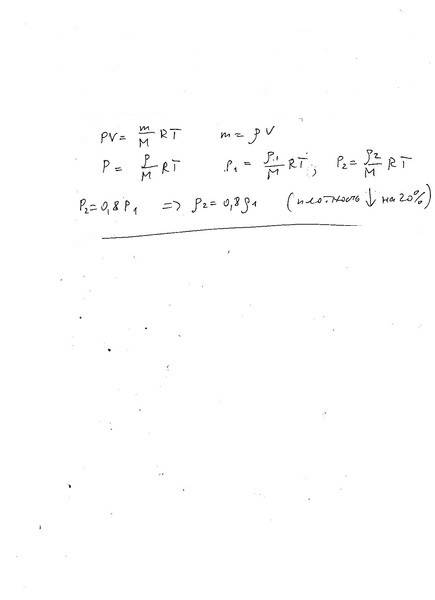 PV = m/M RT   m = ρV
P = ρ/M RT   P₁ = ρ₁/M RT, P₂ = ρ₂/M RT
P₂ = 0,8 P₁ => ρ₂ = 0,8 ρ₁ (плотность ↓ на 20%)